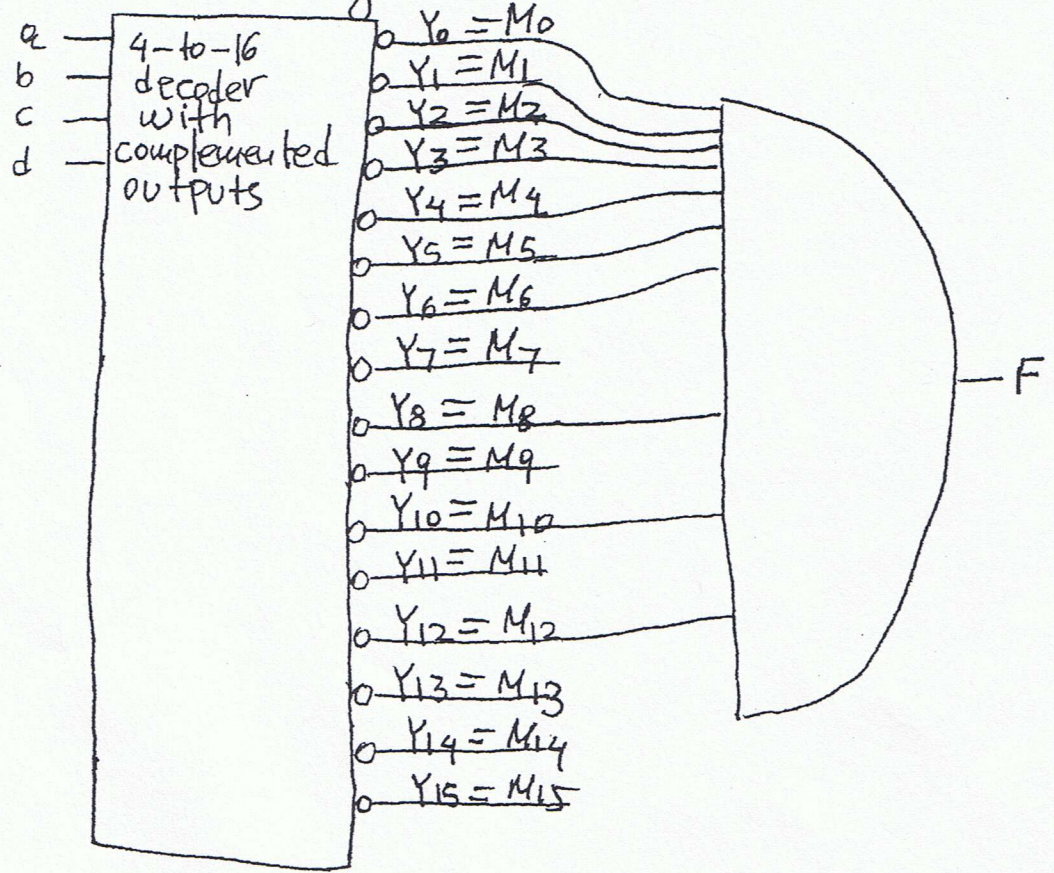 a
b
c
d
4-to-16
decoder
with
complemented
outputs
Y0 = M0
Y1 = M1
Y2 = M2
Y3 = M3
Y4 = M4
Y5 = M5
Y6 = M6
Y7 = M7
Y8 = M8
Y9 = M9
Y10 = M10
Y11 = M11
Y12 = M12
Y13 = M13
Y14 = M14
Y15 = M15
F